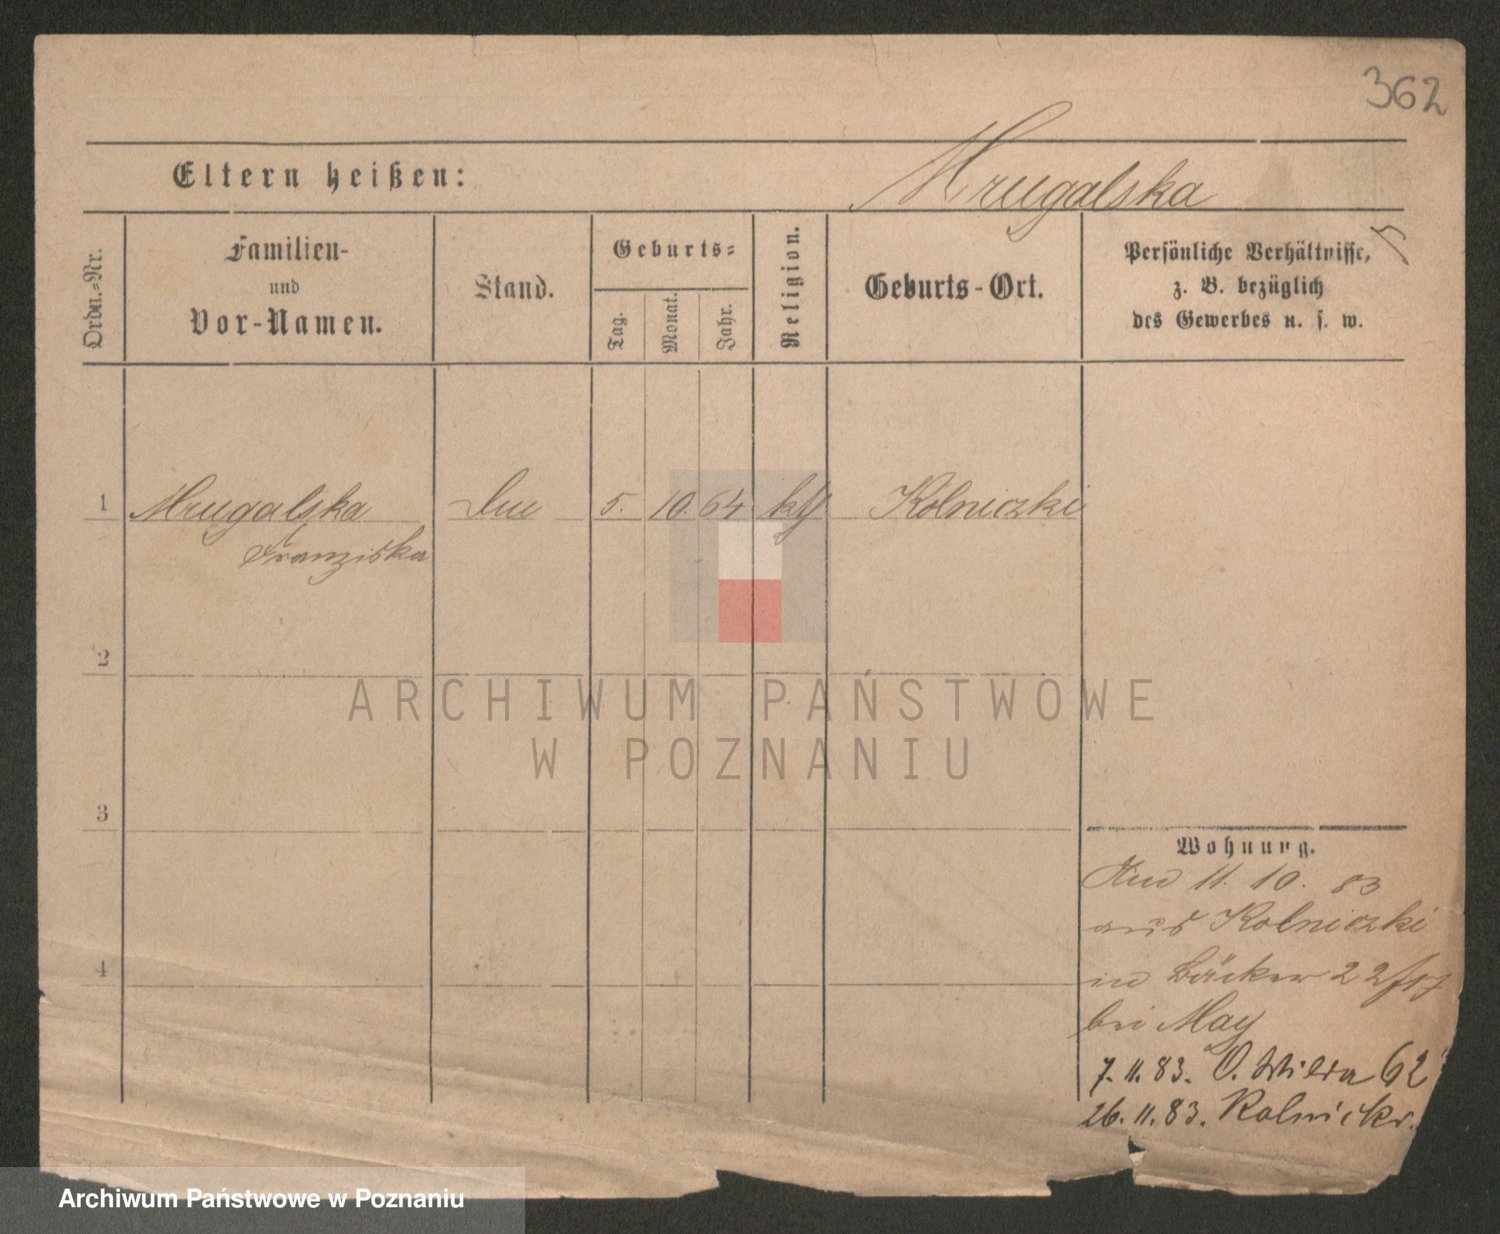 362
Eltern heißen:
Mrugalska
Ordn.-Nr.
Familien-
und
Vor-Namen.
Stand.
Geburts-
Tag.
Monat.
Jahr.
Religion.
Geburts-Ort.
Persönliche Verhältnisse,
z. B. bezüglich
des Gewerbes u. s. w.
1 Mrugalska 5. 10 64 kth Kolniczki
Franziska
2
ARCHIWUM PAŃSTWOWE
W POZNANIU
3
Wohnung.
11. 10. 83
aus Kolniczki
Bäcker 22/17
4
bei May
7. 11. 83. O. Wilda 62
26. 11. 83.
Archiwum Państwowe w Poznaniu